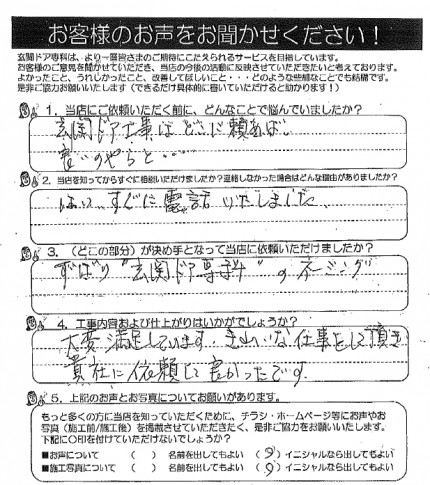 お客様のお声をお聞かせください!
玄関ドア専科は、より一層皆さまのご期待にこたえられるサービスを目指しています。
お客様のご意見を聞かせていただき、当店の今後の活動に反映させていただきたいと考えております。
よかったこと、うれしかったこと、改善して欲しいこと・・・どのような些細なことでも結構です。
是非ご協力お願いいたします(できるだけ具体的に書いていただけると助かります!)
1. 当店にご依頼いただく前に、どんなことで悩んでいましたか?
玄関ドア工事はどこに頼めば
良いのやらと・・・・
2. 当店を知ってからすぐに相談いただけましたか?連絡しなかった場合はどんな理由がありましたか?
はい、すぐに電話いたしました
3. (どこの部分)が決め手となって当店に依頼いただけましたか?
ずばり“玄関ドア専科”のネーミング
4. 工事内容および仕上がりはいかがでしょうか?
大変満足しています。きれいな仕事をして頂き
貴社に依頼して良かったです
5. 上記のお声とお写真についてお願いがあります。
もっと多くの方に当店を知っていただくために、チラシ・ホームページ等にお声やお
写真(施工前/施工後)を掲載させていただきたく、是非ご協力をお願いいたします。
下記に○印を付けていただけないでしょうか?
■お声について ( ) 名前を出してもよい (○) イニシャルなら出してもよい
■施工写真について ( ) 名前を出してもよい (○) イニシャルなら出してもよい